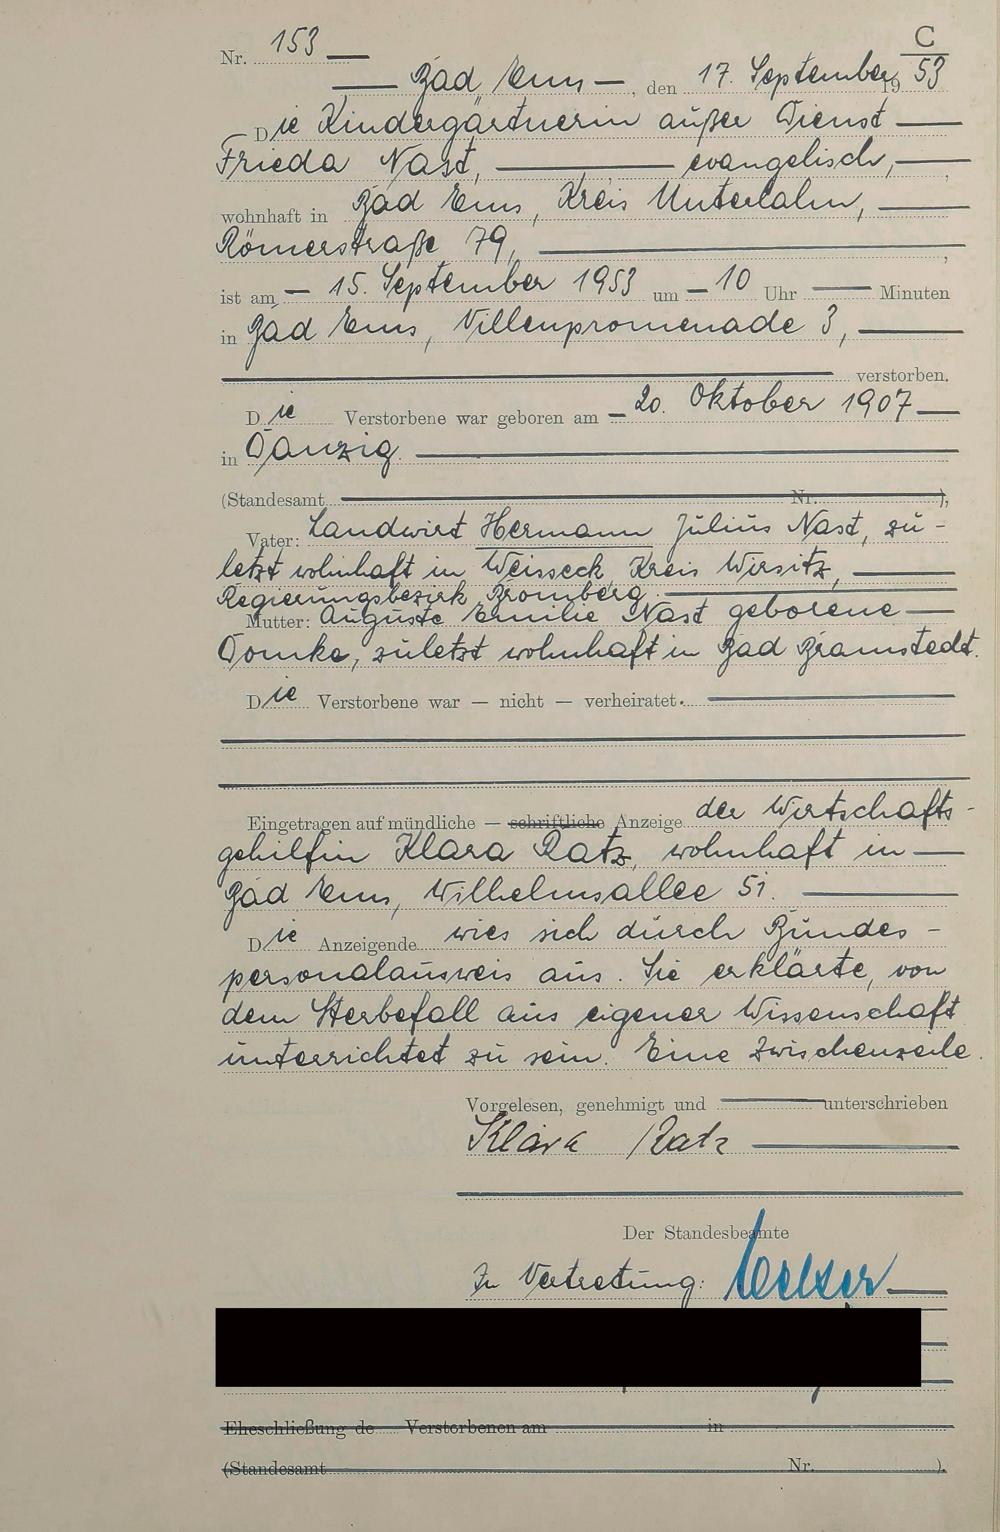 C
Nr. 153
Bad Ems, den 17. September 1953
Die Kindergärtnerin außer Dienst
Frieda Nast, evangelisch,
wohnhaft in Bad Ems, Kreis Unterlahn,
Römerstraße 79,
ist am 15. September 1953 um 10 Uhr Minuten
in Bad Ems, Villenpromenade 3,
verstorben.
Die Verstorbene war geboren am 20. Oktober 1907
in Danzig.
(Standesamt Nr. ),
Vater: Landwirt Hermann Julius Nast, zu-
letzt wohnhaft in Weisseck, Kreis Wirsitz,
Regierungsbezirk Bromberg.
Mutter: Auguste Emilie Nast geborene
Domke, zuletzt wohnhaft in Bad Bramstedt.
Die Verstorbene war — nicht — verheiratet.
Eingetragen auf mündliche — schriftliche Anzeige der Wirtschafts-
gehilfin Klara Ratz, wohnhaft in
Bad Ems, Wilhelmsallee 51.
Die Anzeigende wies sich durch Bundes-
personalausweis aus. Sie erklärte, von
dem Sterbefall aus eigener Wissenschaft
unterrichtet zu sein. Eine Zwischenzeile.
Vorgelesen, genehmigt und unterschrieben
Klara Ratz
Der Standesbeamte
In Vertretung:
Eheschließung de Verstorbenen am in
(Standesamt Nr. ).